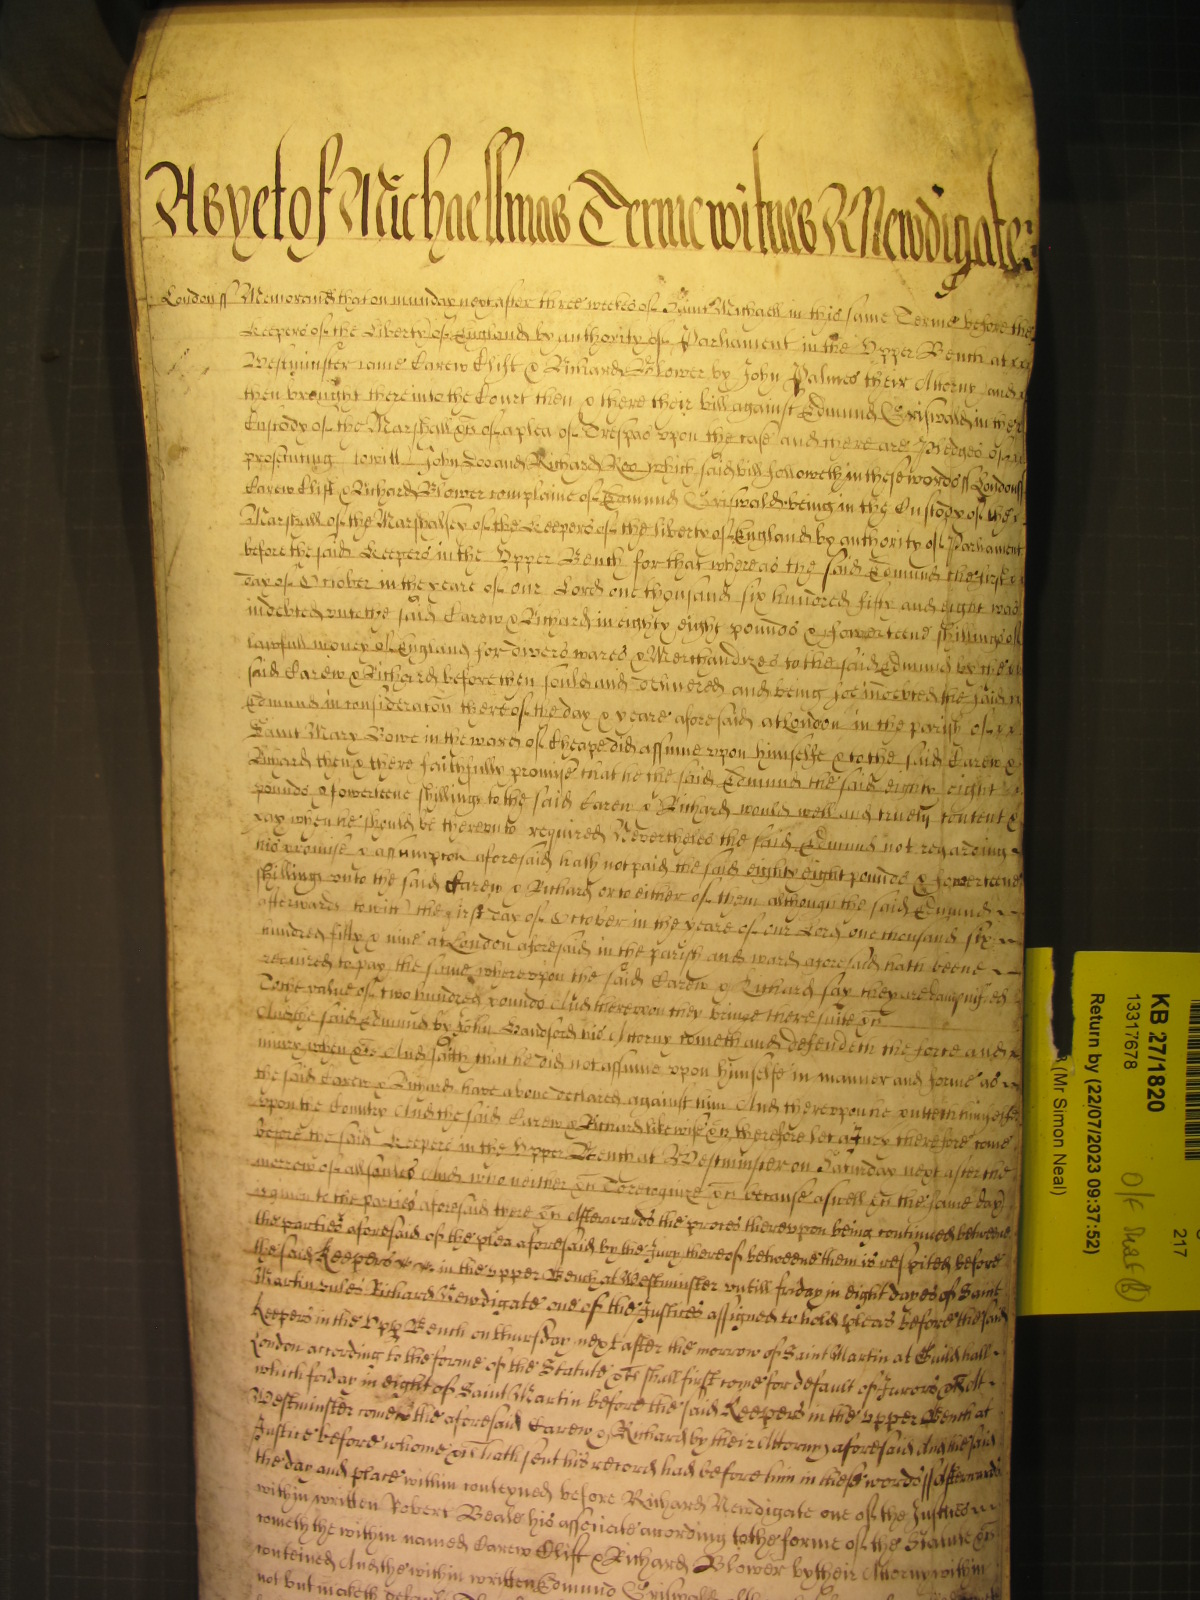 As yet of Michaellmas Terme witnes R Newdigate:
London ss Memorand that on munday next after three weekes of Saint Michaell in this same Terme before the
Keepers of the Liberty of England by authority of Parliament in the Upper Bench at
Westminster came Carew Clift & Richard Blower by John Palmes their Attorny and
then brought there into the Court then & there their bill against Edmund Griswald in the
Custody of the Marshall &c of a plea of Trespas upon the case and there are Pledges of
prosecuting to witt John Doo and Richard Roo which said bill followeth in these words ss London ss
Carew Clift & Richard Blower complaine of Edmund Griswald being in the Custody of the
Marshall of the Marshalsey of the Keepers of the liberty of England by authority of Parliament
before the said Keepers in the Upper Bench for that whereas the said Edmund the first
day of October in the yeare of our Lord one thousand six hundred fifty and eight was
indebted unto the said Carew & Richard in eighty eight pounds & fowerteene shillings of
lawfull money of England for divers wares & Merchandizes to the said Edmund by the
said Carew & Richard before then sould and delivered and being soe indebted the said
Edmund in consideracon thereof the day & yeare aforesaid at London in the parish of
Saint Mary Bowe in the ward of Cheape did assume upon himselfe & to the said Carew &
Richard then & there faithfully promise that he the said Edmund the said eighty eight
pounds & fowerteene shillings to the said Carew & Richard would well and truely content &
pay when he should be thereunto required Nevertheles the said Edmund not regarding
his promise & assumpton aforesaid hath not paid the said eighty eight pounds & fowerteene
shillings unto the said Carew & Richard or to either of them although the said Edmund
afterwards to witt the first day of October in the yeare of our Lord one thousand six
hundred fifty & nine at London aforesaid in the parish and ward aforesaid hath beene
required to pay the same whereupon the said Carew & Richard say they are dampnified
To the value of two hundred pounds And thereupon they bringe there suite &c
And the said Edmund by John Handford his Attorny cometh and defendeth the force and
iniury when &c And saith that he did not assume upon himselfe in manner and forme as
the said Carew & Richard have above declared against him And thereupon he putteth himselfe
upon the Country And the said Carew & Richard likewise &c therefore let a Jury therefore come
before the said Keepers in the Upper Bench at Westminster on Saturday next after the
morrow of all soules And who neither &c To recognize &c because aswell &c the same day
is given to the parties aforesaid there &c Afterwards the proces thereupon being continued betweene
the parties aforesaid of the plea aforesaid by the Jury thereof betweene them is respited before
the said Keepers in the upper Bench at Westminster untill friday in eight dayes of Saint
Martin unles Richard Newdigate one of the Justices assigned to hold pleas before the said
Keepers in the Upp Bench on thursday next after the morrow of Saint Martin at Guildhall
London according to the forme of the Statute &c shall first come for default of Jurors &c At
which friday in eight of Saint Martin before the said Keepers in the upper Bench at
Westminster comes the aforesaid Carew & Richard by their Attorny aforesaid And the said
Justice before whome &c hath sent his record had before him in these words ss Afterwards
the day and place within conteyned before Richard Newdigate one of the Justices
within written Robert Beale his associate according to the forme of the Statute &c
cometh the within named Carew Clift & Richard Blower by their Attorny within
conteined And the within written Edmund Griswald
not but maketh default
KB 27/1820
13317678
Return by (22/07/2023 09:37:52)
(Mr Simon Neal)
217